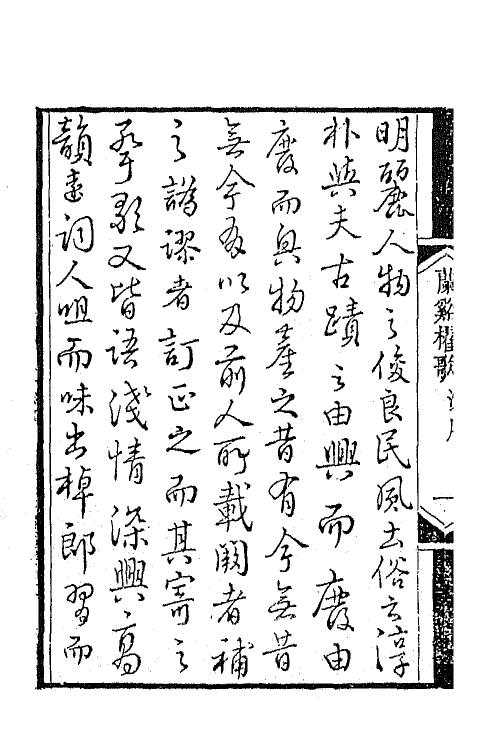 明麗人物之俊良民風土俗之淳
朴與夫古蹟之由興而廢由
廢而興物產之昔有今無昔
無今有以及前人所載闕者補
之譌謬者訂正之而其寄之
乎歌又皆語淺情深興高
韻遠詞人咀而味之棹郎習而
蘭谿櫂歌 序 一